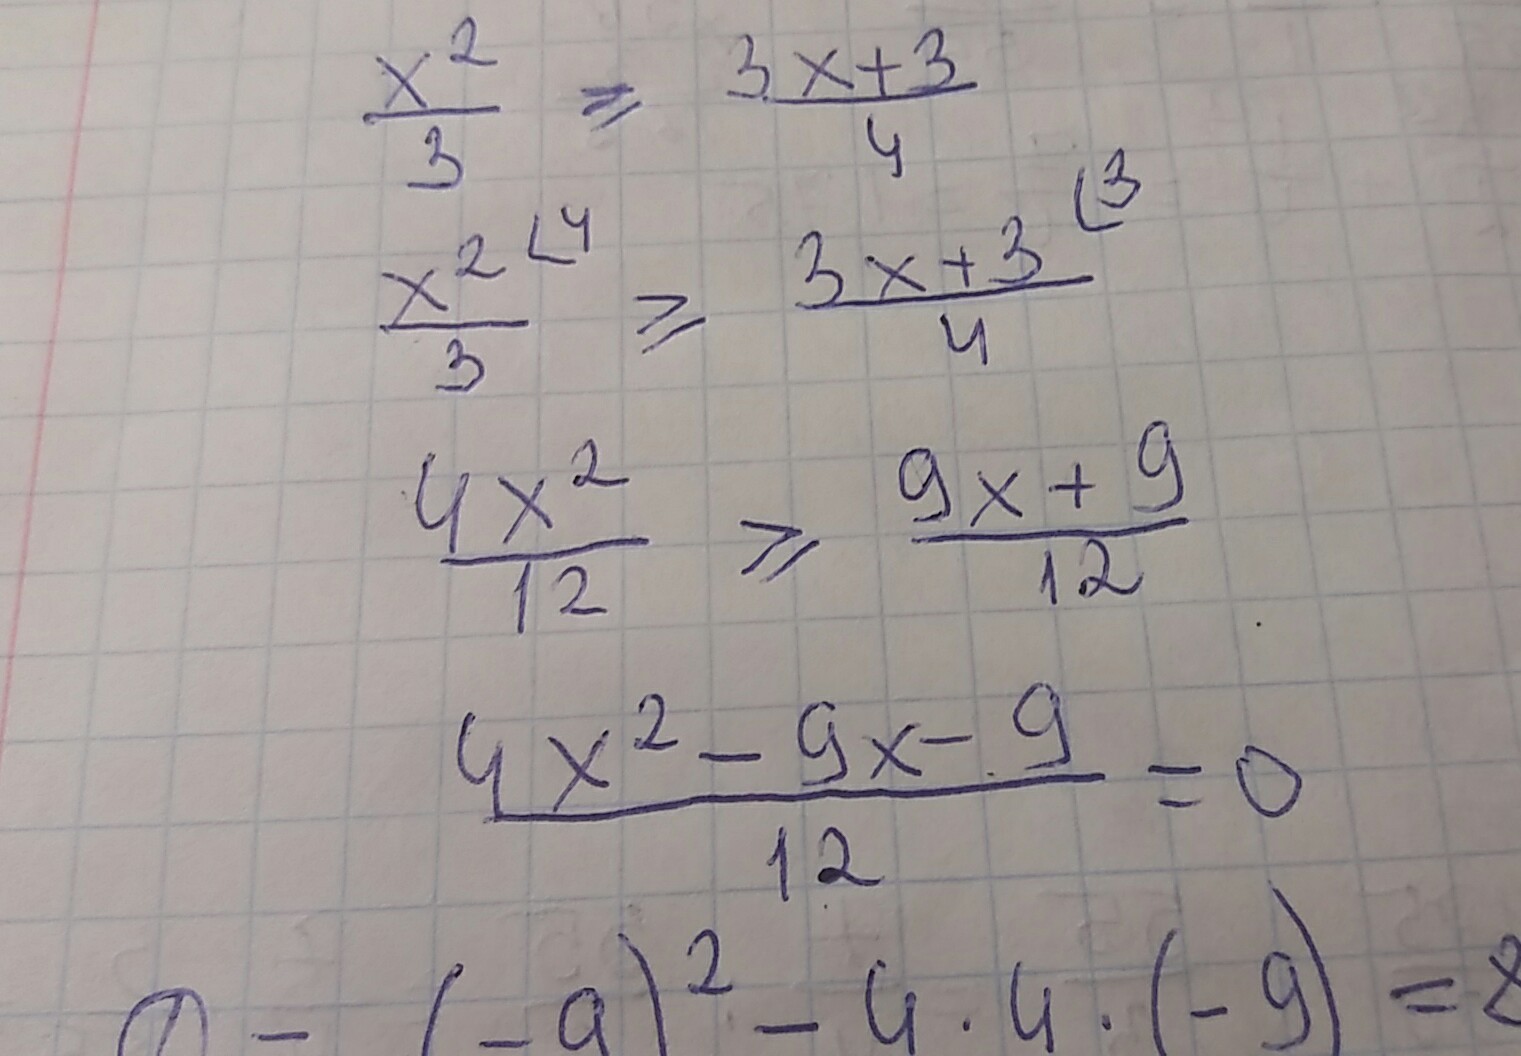 x²/3 ≥ 3x+3/4
x²/3 ⌊4 ≥ 3x+3/4 ⌊3
4x²/12 ≥ 9x+9/12
4x²-9x-9/12 = 0
D = (-9)² - 4·4·(-9) = 8